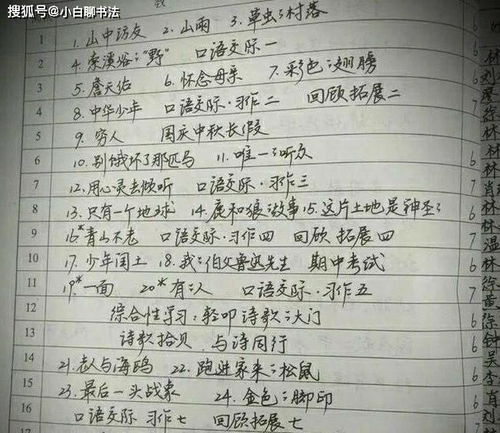 搜狐号@小白聊书法
1 1.山中访友 2.山雨 3.草虫之村落 6
2 4.索溪峪之"野" 口语交际一 6 林
3 5.詹天佑 6.怀念母亲 7.彩色之翅膀 7 刘
4 8.中华少年 口语交际·习作二 回顾拓展二 6
5 9.穷人 国庆中秋长假 6 徐
6 10.别饿坏了那匹马 11.唯一之听众 6 林
7 12.用心灵去倾听 口语交际·习作三 7 肖
8 13.只有一个地球 14.鹿和狼之故事 15.这片土地是神圣之 6 林
9 16*青山不老 口语交际·习作四 回顾拓展四 6 温
10 17.少年闰土 18.我之伯父鲁迅先生 期中考试 6 林
11 19*一面 20*有之人 口语交际·习作五 6 徐
12 综合性学习:轻叩诗歌之大门 7 黄
13 诗歌拾贝 与诗同行 6 徐
14 21.老人与海鸥 22.跑进家来之松鼠 6 钟
15 23.最后一头战象 24.金色之脚印 6 李
16 口语交际 习作七 回顾拓展七 6 肖
刘